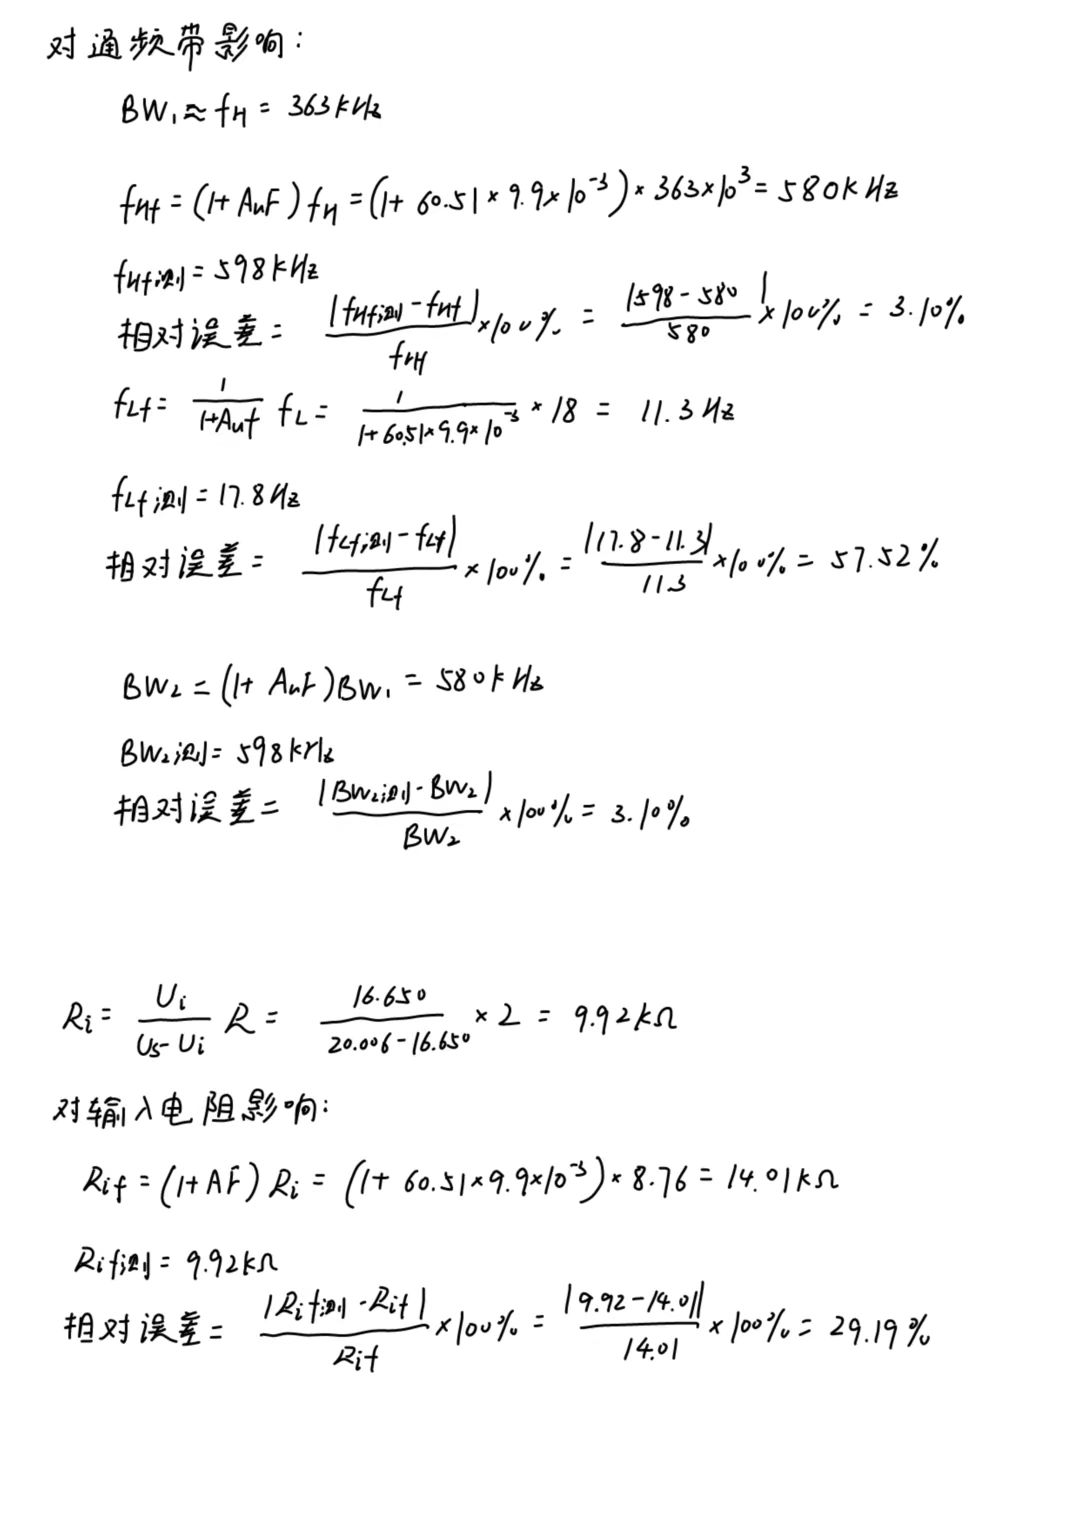 对通频带影响:
BW₁≈fH = 363kHz
fHf = (1+AuF)fH = (1+60.51×9.9×10⁻³)×363×10³ = 580kHz
fHf测 = 598kHz
相对误差 = |fHf测-fHf|/fHf ×100% = |598-580|/580 ×100% = 3.10%
fLf = 1/(1+Auf) fL = 1/(1+60.51×9.9×10⁻³) ×18 = 11.3Hz
fLf测 = 17.8Hz
相对误差 = |fLf测-fLf|/fLf ×100% = |17.8-11.3|/11.3 ×100% = 57.52%
BW₂ = (1+AuF)BW₁ = 580kHz
BW₂测 = 598kHz
相对误差 = |BW₂测-BW₂|/BW₂ ×100% = 3.10%
Ri = Ui/(Us-Ui) R = 16.650/(20.006-16.650) ×2 = 9.92kΩ
对输入电阻影响:
Rif = (1+AF)Ri = (1+60.51×9.9×10⁻³)×8.76 = 14.01kΩ
Rif测 = 9.92kΩ
相对误差 = |Rif测-Rif|/Rif ×100% = |9.92-14.01|/14.01 ×100% = 29.19%